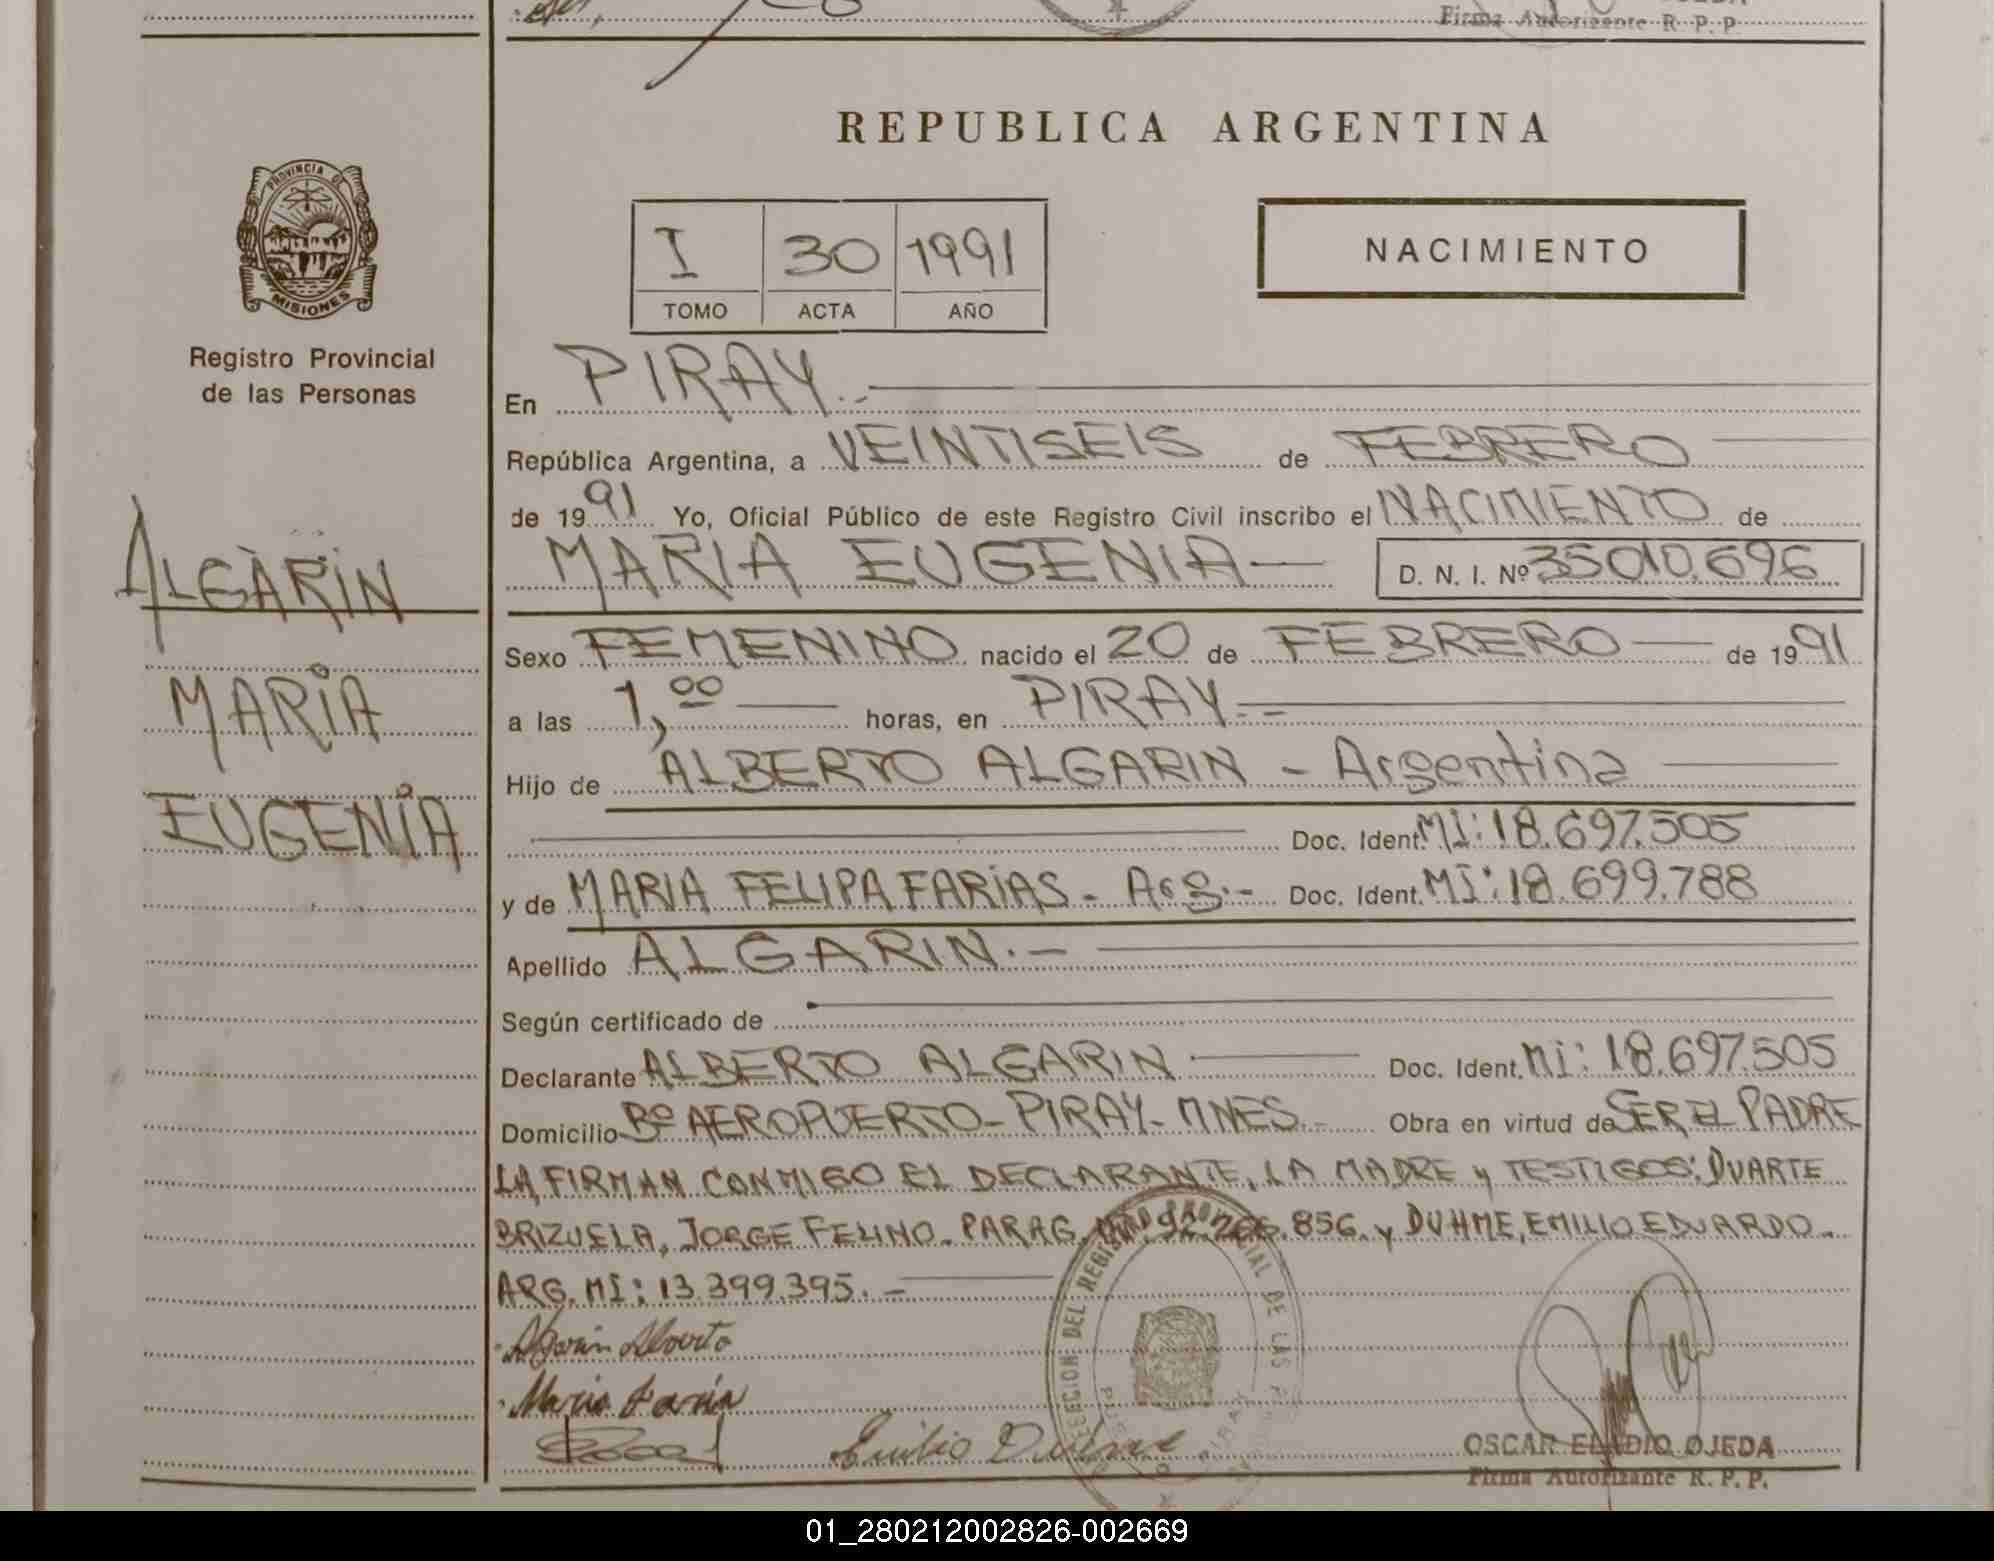 Firma Autorizante R. P. P.
REPUBLICA ARGENTINA
PROVINCIA DE
MISIONES
I 30 1991
TOMO ACTA AÑO
NACIMIENTO
Registro Provincial
de las Personas
En PIRAY.-
República Argentina, a VEINTISEIS de FEBRERO
de 1991 Yo, Oficial Público de este Registro Civil inscribo el NACIMIENTO de
MARIA EUGENIA— D. N. I. Nº 35010.696
ALGARIN
MARIA
EUGENIA
Sexo FEMENINO nacido el 20 de FEBRERO — de 1991
a las 1,00 — horas, en PIRAY.-
Hijo de ALBERTO ALGARIN - Argentina
Doc. Ident. MI: 18.697.505
y de MARIA FELIPA FARIAS.- Arg.- Doc. Ident. MI: 18.699.788
Apellido ALGARIN.-
Según certificado de
Declarante ALBERTO ALGARIN — Doc. Ident. MI: 18.697.505
Domicilio Bº AEROPUERTO- PIRAY- MNES.- Obra en virtud de SER EL PADRE
LA FIRMAN CONMIGO EL DECLARANTE, LA MADRE y TESTIGOS: DUARTE
BRIZUELA, JORGE FELINO. PARAG. 92.266.856. y DUHME, EMILIO EDUARDO.
ARG. MI: 13.399.395.-
Algarin Alberto
Maria Faria
Emilio Duhme
DEL REGISTRO PROVINCIAL DE LAS
PIRAY
OSCAR ELADIO OJEDA
Firma Autorizante R. P. P.
01_280212002826-002669